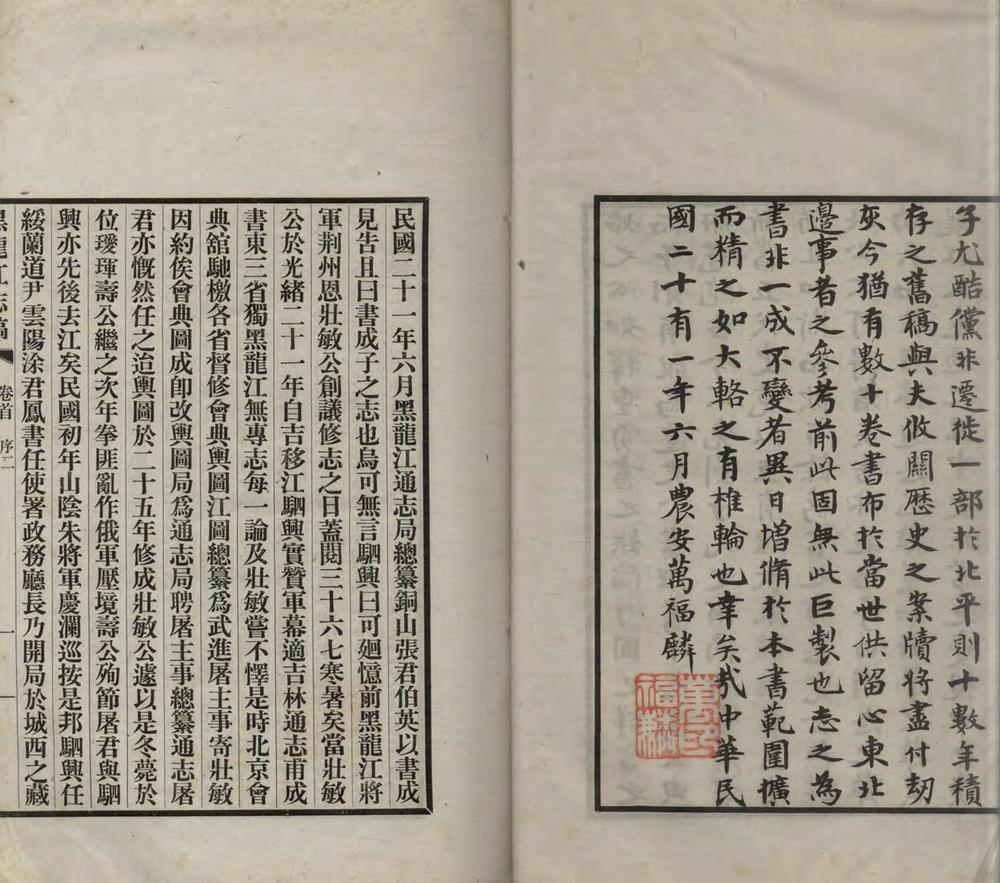 予尤酷儻非遷徙一部於北平則十數年積
存之舊稿與夫攸關歷史之案牘將盡付劫
灰今猶有數十卷書布於當世供留心東北
邊事者之參考前此固無此巨製也志之為
書非一成不變者異日增脩於本書範圍擴
而精之如大輅之有椎輪也幸矣哉中華民
國二十有一年六月農安萬福麟
萬福麟印
民國二十一年六月黑龍江通志局總纂銅山張君伯英以書成
見告且曰書成子之志也烏可無言駟興曰可廻憶前黑龍江將
軍荆州恩壯敏公創議修志之日蓋閱三十六七寒暑矣當壯敏
公於光緒二十一年自吉移江駟興實贊軍幕適吉林通志甫成
書東三省獨黑龍江無專志每一論及壯敏嘗不懌是時北京會
典舘馳檄各省督修會典輿圖江圖總纂爲武進屠主事寄壯敏
因約俟會典圖成卽改輿圖局爲通志局聘屠主事總纂通志屠
君亦慨然任之迨輿圖於二十五年修成壯敏公遽以是冬薨於
位璦琿壽公繼之次年拳匪亂作俄軍壓境壽公殉節屠君與駟
興亦先後去江矣民國初年山陰朱將軍慶瀾巡按是邦駟興任
綏蘭道尹雲陽涂君鳳書任使署政務廳長乃開局於城西之藏
黑龍江志稿 卷首 序二 一